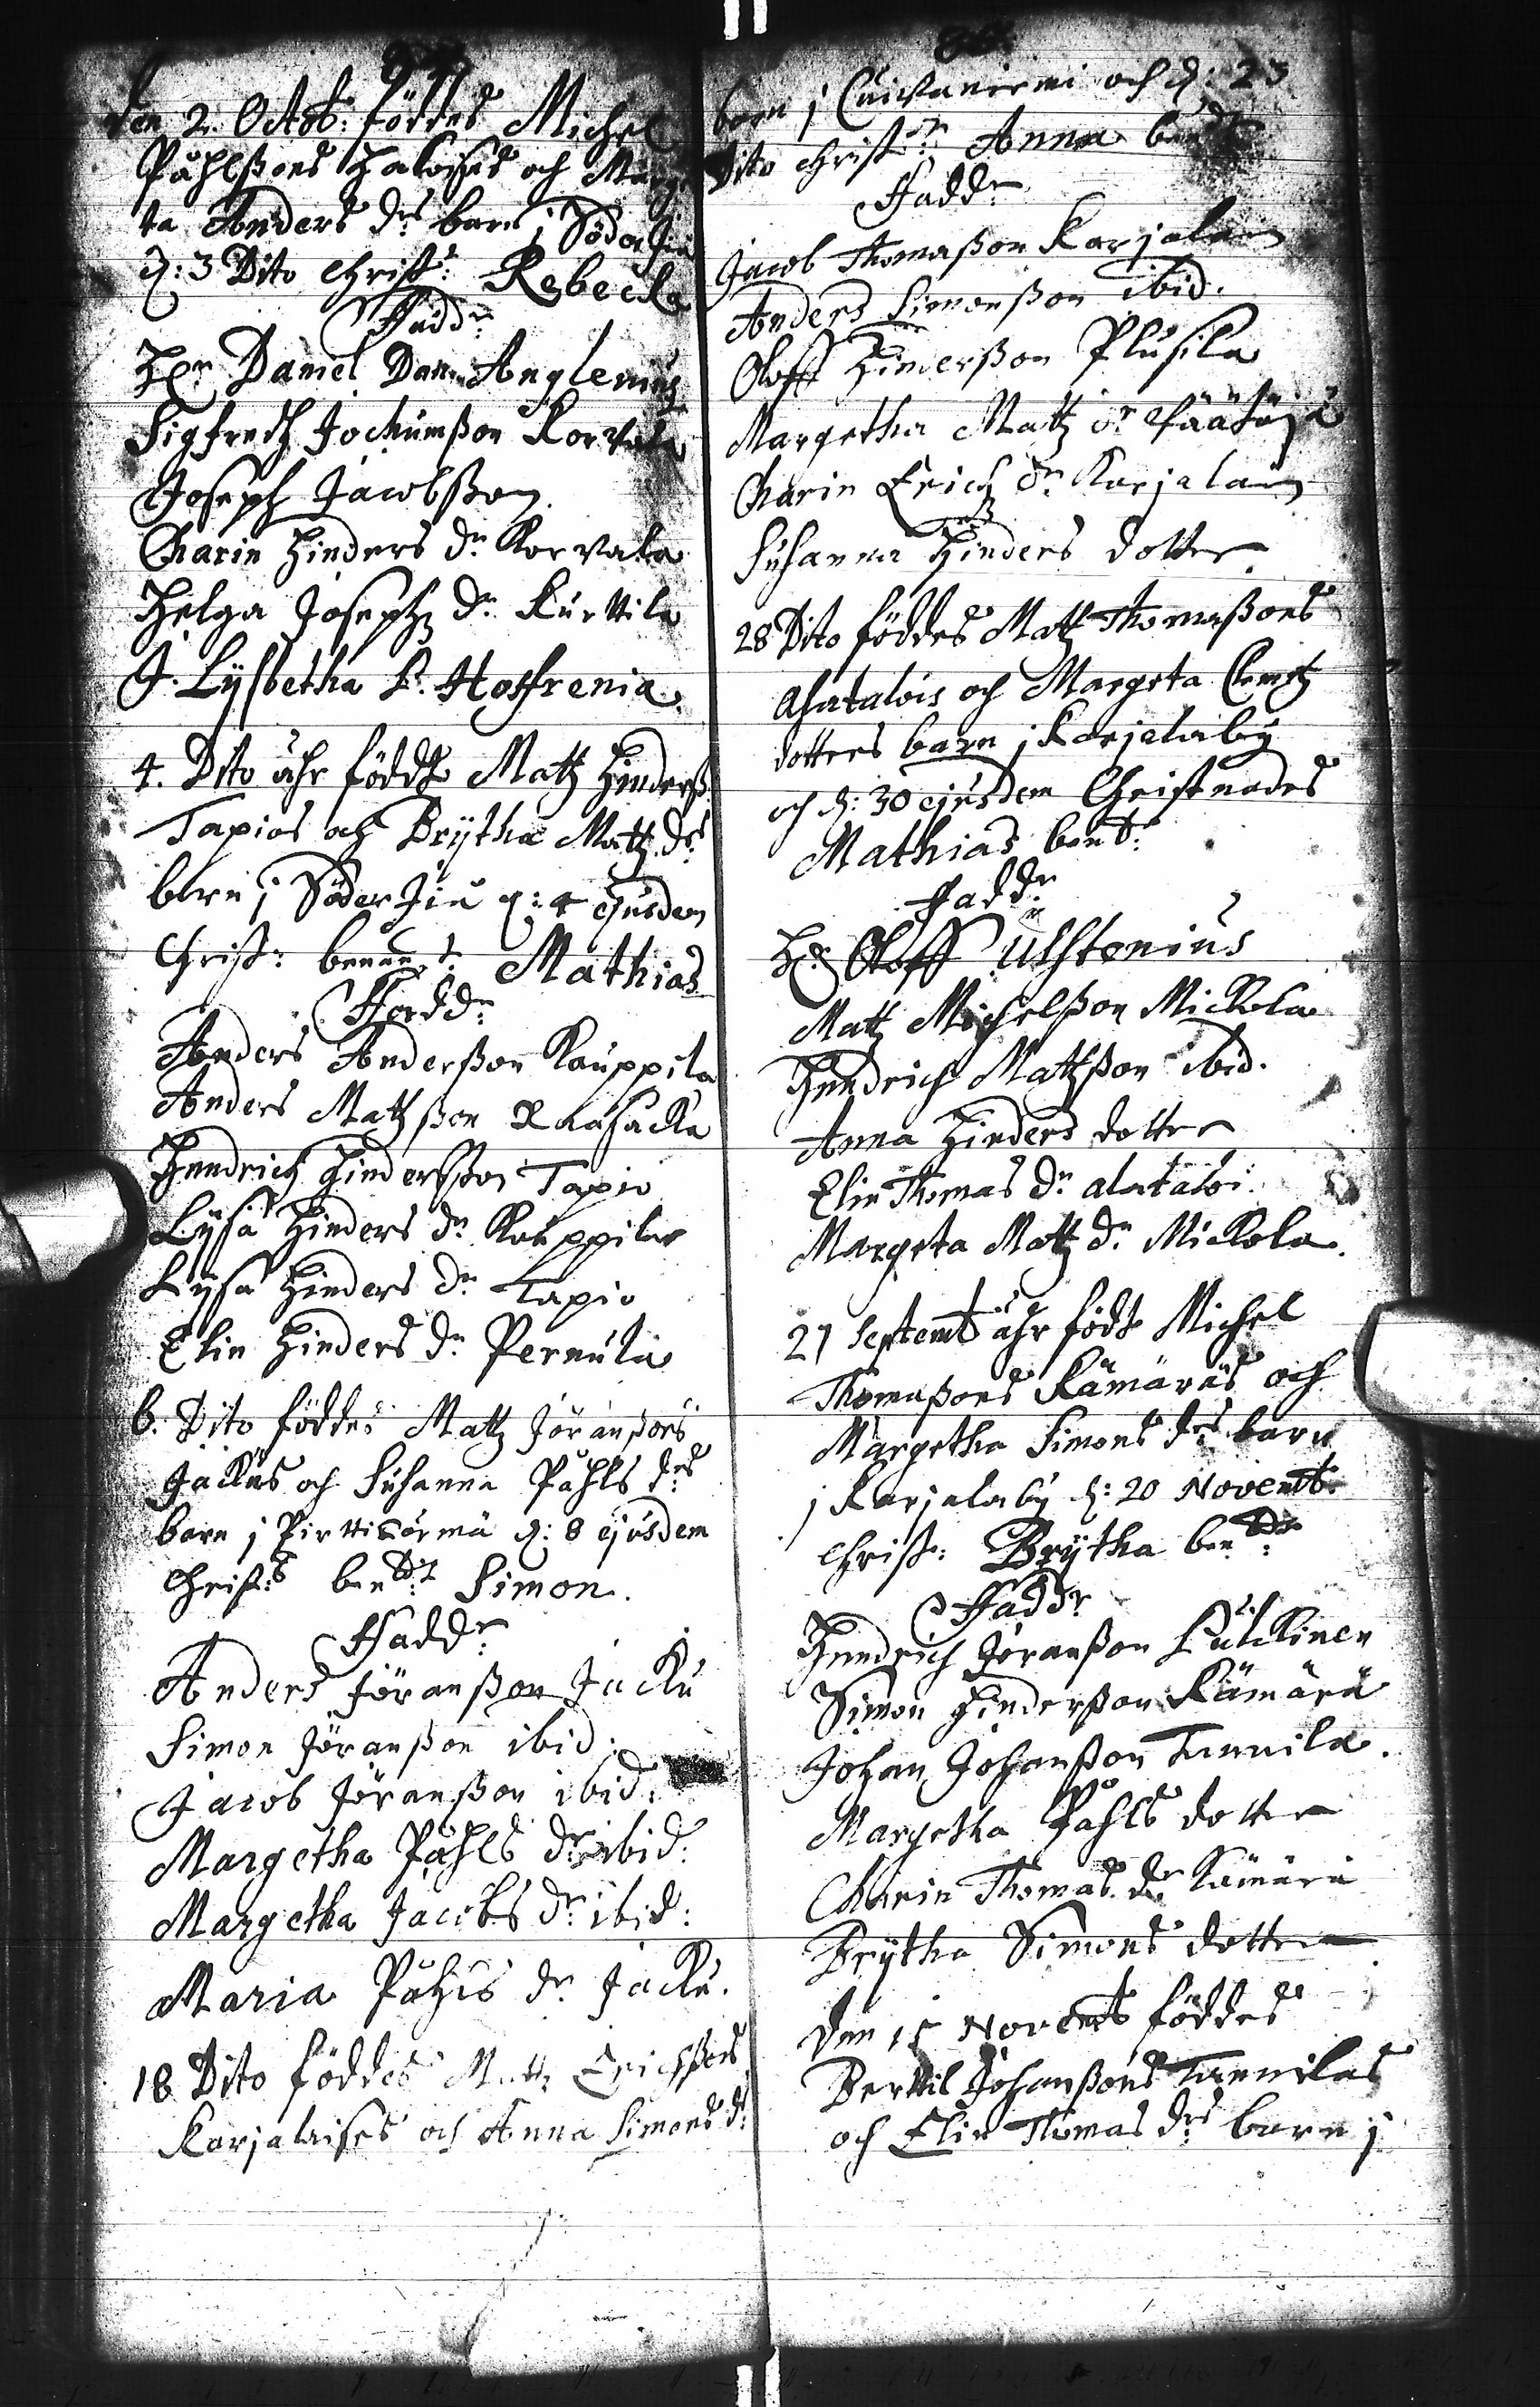 den 2. Octob: föddes Michel
Påhlßons Halosses och Marge
ta Anders drs barn j Söder Jiu
d: 3 Dito Christ: Rebecka
Faddr:
Hr Daniel Dan: Anglenius
Sigfredh Jochumßon Korvala
Joseph Jacobßon
Charin Hinders dr Korvala
Helga Josephz dr Kurttila
J. Lysbetha S. Hoffrenia.
4. Dito ähr födde Matz Hinderß:
Tapios och Brytha Matz drs
barn j Söder Jiu d: 4 ejusdem
Christ: benned: Mathias
Faddr:
Anders Anderßon Kauppila
Anders Matzßon Raasacka
Hendrich Hinderßon Tapio
Lysa Hinders dr Kauppila
Lysa Hinders dr Tapio
Elin Hinders dr Pernula
6. Dito föddes Matz Jöranßons
Jackus och Susanna Påhls drs
barn j Pirttisormä d: 8 ejusdem
Christ: bendt Simon.
Faddr:
Anders Jöranßon Jacku
Simon Jöranßon ibid:
Jacob Jöranßon ibid:
Margetha Påhls dr ibid:
Margetha Jacobs dr ibid:
Maria Påhls dr Jacku.
18 Dito föddes Matz Erichßons
Karjalaises och Anna Simons drs
barn j Cuivaniemi och d: 23
Dito christn: Anna bendt
Faddr
Jacob Thomaßon Karjalain
Anders Simonßon ibid.
Oloff Hinderßon Plusila
Margetha Matz dr Päätäjä
Charin Erichz dr Karjalain
Susanna Hinders dotter.
28 Dito föddes Matz Thomaßons
Alatalois och Margeta Clemetz
dotters barn j Karjalaby
och d: 30 ejusdem Christnades
Mathias bent:
Faddr:
Hr Oloff Ulstenius
Matz Michelßon Mickola
Hendrich Matzßon ibid.
Anna Hinders dotter
Elin Thomas dr alataloi.
Margeta Matz dr Mickola.
27 Septemb ähr födt Michel
Thomaßons Kämäräs och
Margetha Simons drs barn
j Karjalaby d: 20 Novemb:
Christ: Brytha bendt:
Faddr
Hendrich Jöranßon Lulckinen
Simon Hinderßon Kämärä
Johan Johanßon Tannila.
Margetha Påhls dotter
Charin Thomas dr Kämärä
Brytha Simons dotter
Den 15 Novemb föddes
Berttil Johanßons Tannilas
och Elin Thomas drs barn j